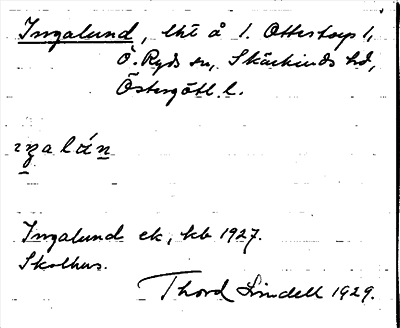 Ingalund, lht å 1. Ottestorp 1,
Ö. Ryds sn, Skärkinds hd,
Östergötl. l.
Ingalund ek, kb 1927.
Skolhus.
Thord Lindell 1929.